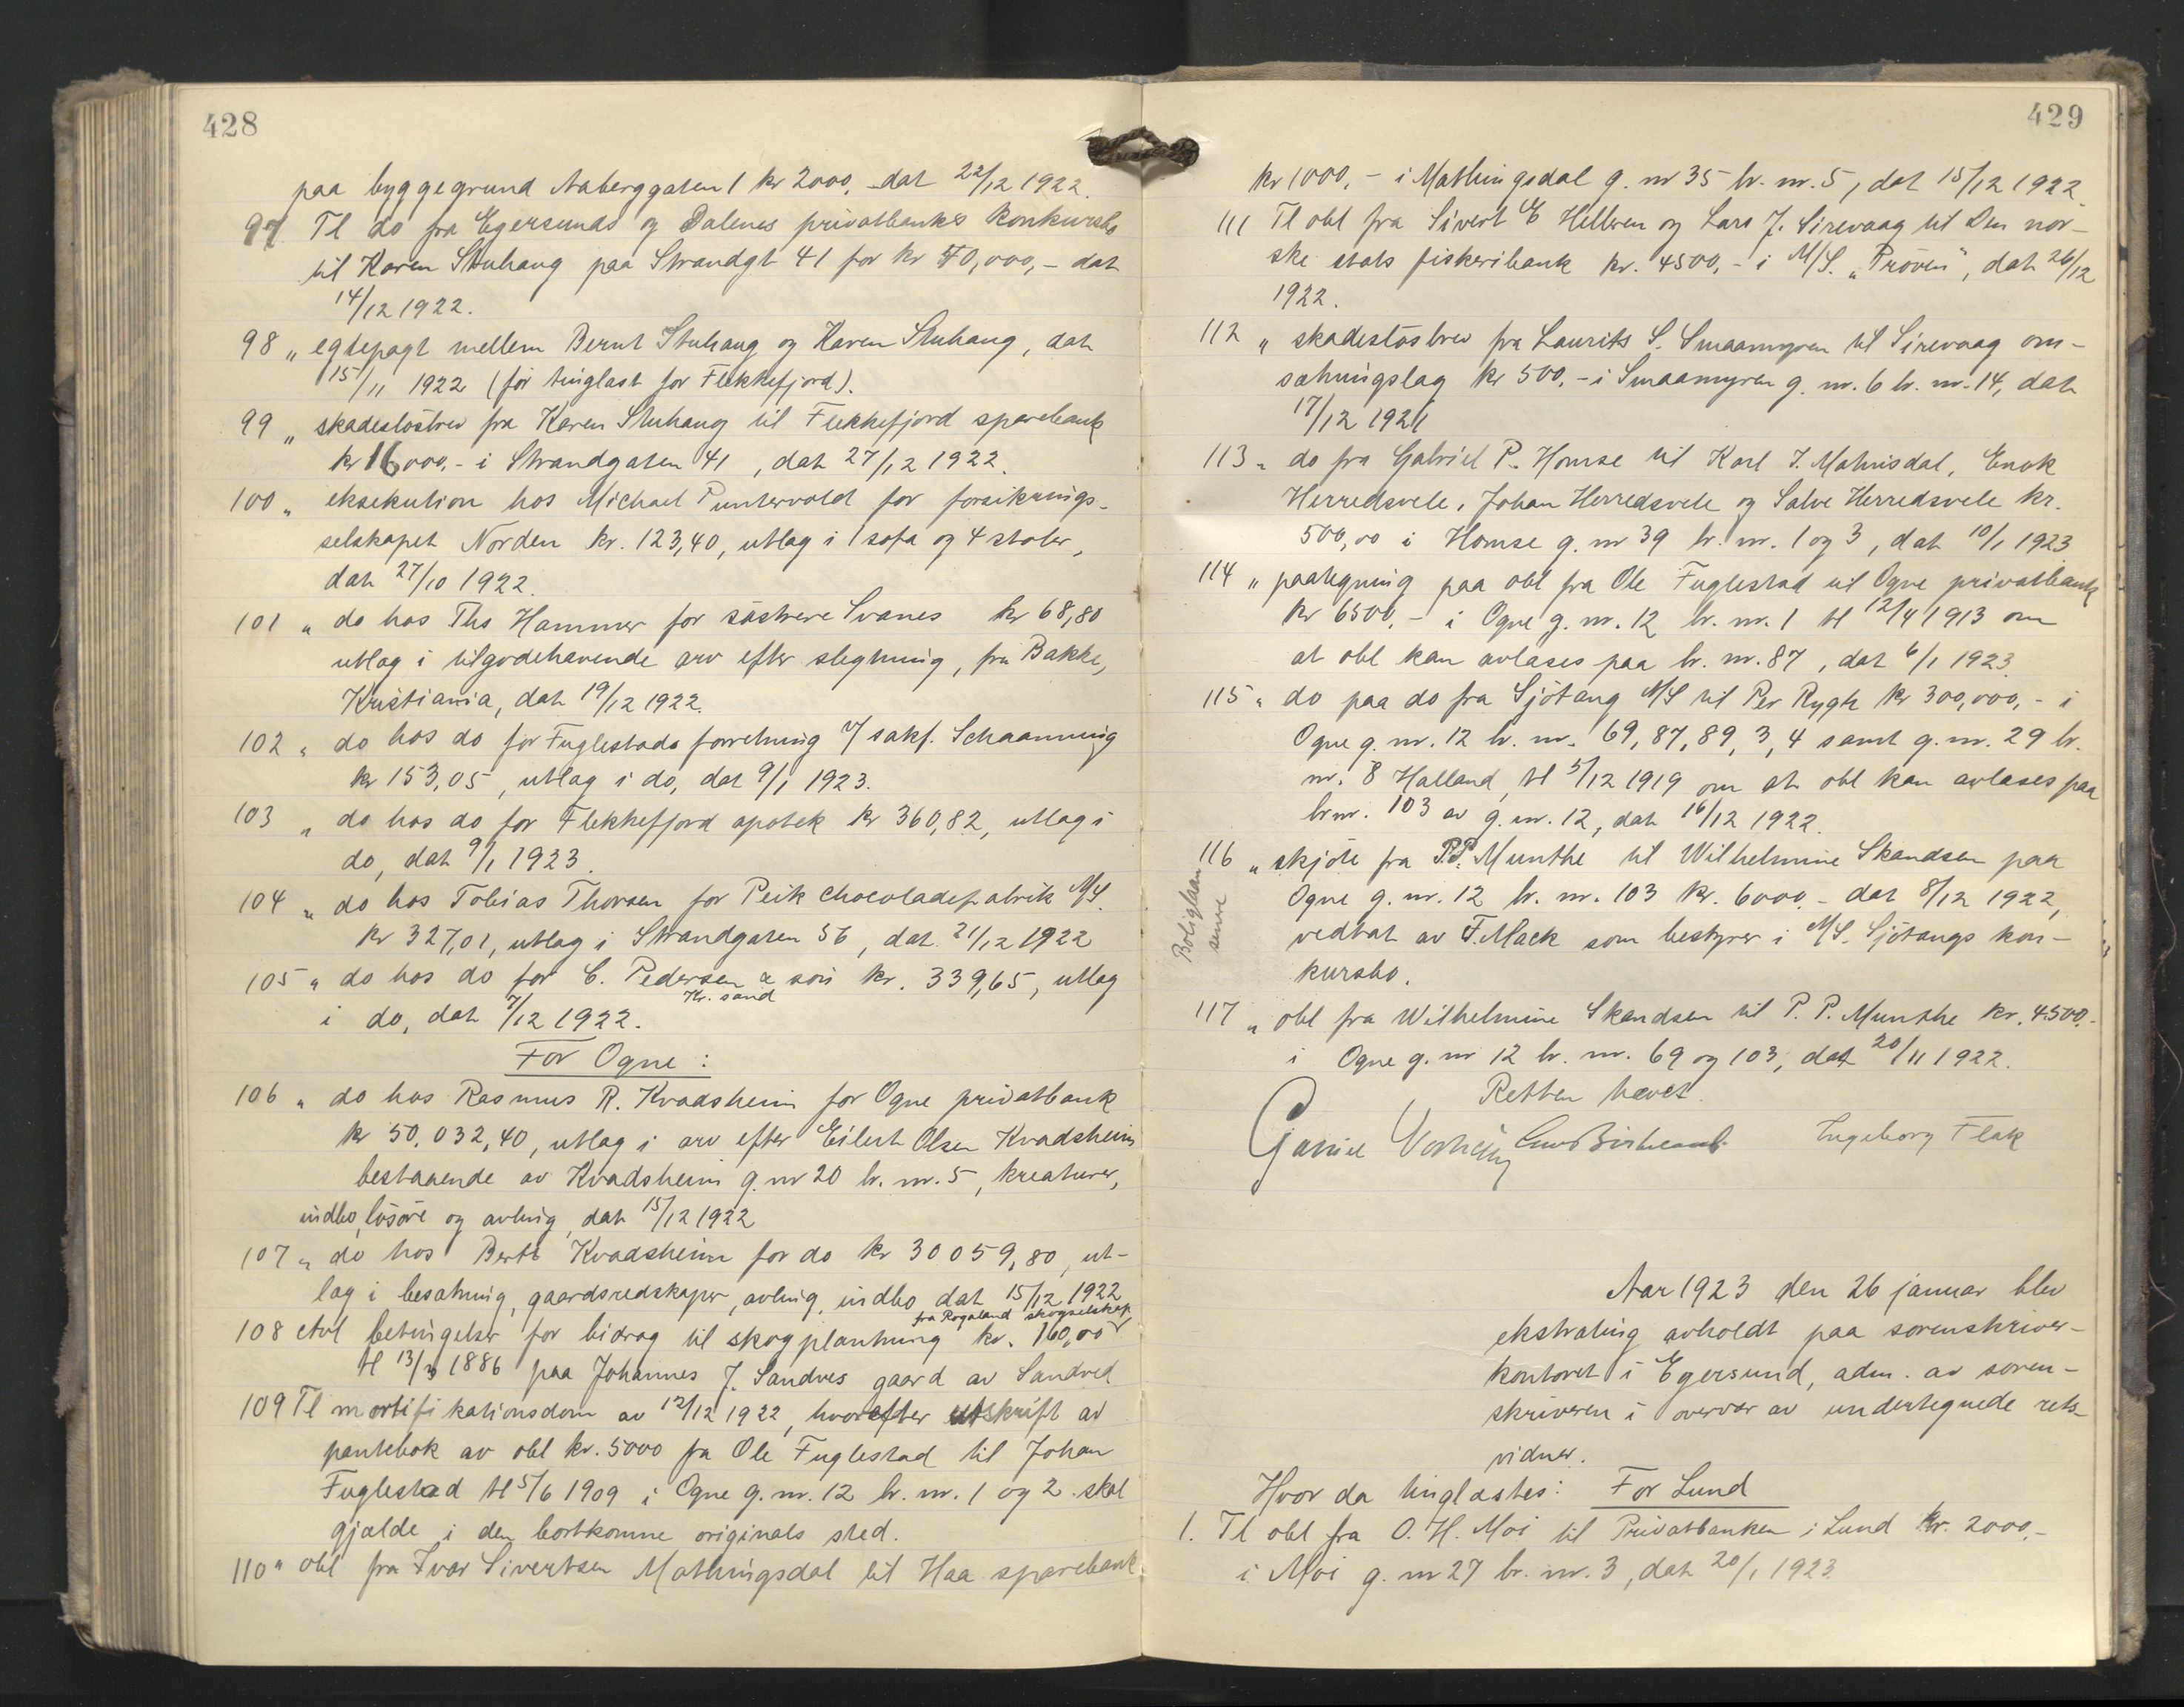 428
paa byggegrund Aaberggaten 1 kr 2000,- dat 22/12 1922.
97 Tl do fra Egersunds og Dalenes privatbanks konkursbo
til Karen Stuhaug paa Strandgt 41 for kr 70,000,- dat
14/12 1922.
98 „ egtepagt mellem Bernt Stuhaug og Karen Stuhaug, dat
15/11 1922 (før tinglæst for Flekkefjord).
99 „ skadesløsbrev fra Karen Stuhaug til Flekkefjord sparebank
kr 16000,- i Strandgaten 41, dat 27/12 1922.
100 „ eksekution hos Michael Puntervold for forsikrings-
selskapet Norden kr. 123,40, utlæg i 1 sofa og 4 stoler,
dat 27/10 1922.
101 „ do hos Ths Hammer for søstrene Svanes kr 68,80
utlæg i tilgodehavende arv efter slegtning, fru Bakke,
Kristiania, dat 19/12 1922.
102 „ do hos do for Fuglestads forretning v/ sakf. Schaanning
kr 153,05, utlæg i do, dat 9/1 1923.
103 „ do hos do for Flekkefjord apotek kr 360,82, utlæg i
do, dat 9/1 1923.
104 „ do hos Tobias Thorsen for Peik chocoladefabrik A/S.
kr 327,01, utlæg i Strandgaten 56, dat 21/12 1922
105 „ do hos do for C. Pedersen & søn Kr. sand kr. 339,65, utlæg
i do, dat 7/12 1922.
For Ogne:
106 „ do hos Rasmus R. Kvadsheim for Ogne privatbank
kr 50.032,40, utlæg i arv efter Eilert Olsen Kvadsheim
bestaaende av Kvadsheim g. nr 20 br. nr. 5, kreaturer,
indbo, løsøre og avling, dat 15/12 1922
107 „ do hos Berte Kvadsheim for do kr 30059,80, ut-
læg i besætning, gaardsredskaper, avling, indbo dat 15/12 1922
108 Avl betingelser for bidrag til skogplantning kr. 160,00 fra Rogaland skogselskap
tl 13/3 1886 paa Johannes J. Sandves gaard av Sandved
109 Tl mortifikationsdom av 12/12 1922, hvorefter utskrift av
pantebok av obl kr. 5000 fra Ole Fuglestad til Johan
Fuglestad tl 5/6 1909 i Ogne g. nr. 12 br. nr. 1 og 2 skal
gjælde i den bortkomne originals sted.
110 „ obl fra Ivar Sivertsen Mathingsdal til Haa sparebank
429
kr 1000,- i Mathingsdal g. nr 35 br. nr. 5, dat 15/12 1922.
111 Tl obl fra Sivert E Hellvren og Lars J. Sirevaag til Den nor-
ske stats fiskeribank kr. 4500,- i M/S. „Prøven", dat 26/12
1922.
112 „ skadesløsbrev fra Laurits S. Smaamyren til Sirevaag om-
sætningslag kr 500,- i Smaamyren g. nr. 6 br. nr. 14, dat
17/12 1921
113 „ do fra Gabriel P. Homse til Karl T. Malmisdal, Enok
Herredsvele, Johan Herredsvele og Salve Herredsvele kr.
500,00 i Homse g. nr 39 br. nr. 1 og 3, dat 10/1 1923
114 „ paategning paa obl fra Ole Fuglestad til Ogne privatbank
kr 6500,- i Ogne g. nr. 12 br. nr. 1 tl 12/4 1913 om
at obl kan avlæses paa br. nr. 87, dat 6/1 1923.
115 „ do paa do fra Sjøtang A/S til Per Rygh kr 300,000,- i
Ogne g. nr. 12 br. nr. 69, 87, 89, 3, 4 samt g. nr. 29 br.
nr. 8 Halland, tl 5/12 1919 om at obl kan avlæses paa
br nr. 103 av g. nr. 12, dat 16/12 1922.
116 „ skjøte fra P.P. Munthe til Wilhelmine Skandsen paa
Ogne g. nr. 12 br. nr. 103 kr. 6000,- dat 8/12 1922,
vedtat av F. Mack som bestyrer i A/S. Sjøtangs kon-
kursbo.
117 „ obl fra Wilhelmine Skandsen til P. P. Munthe kr. 4500,-
i Ogne g. nr 12 br. nr. 69 og 103, dat 20/11 1922.
Retten hævet.
Ingeborg Flak
Aar 1923 den 26 januar blev
ekstrating avholdt paa sorenskriver-
kontoret i Egersund, adm. av soren-
skriveren i overvær av undertegnede rets-
vidner.
Hvor da tinglæstes: For Lund
1. Tl obl fra O. H. Moi til Privatbanken i Lund kr. 2000,-
i Moi g. nr 27 br. nr. 3, dat 20/1 1923.